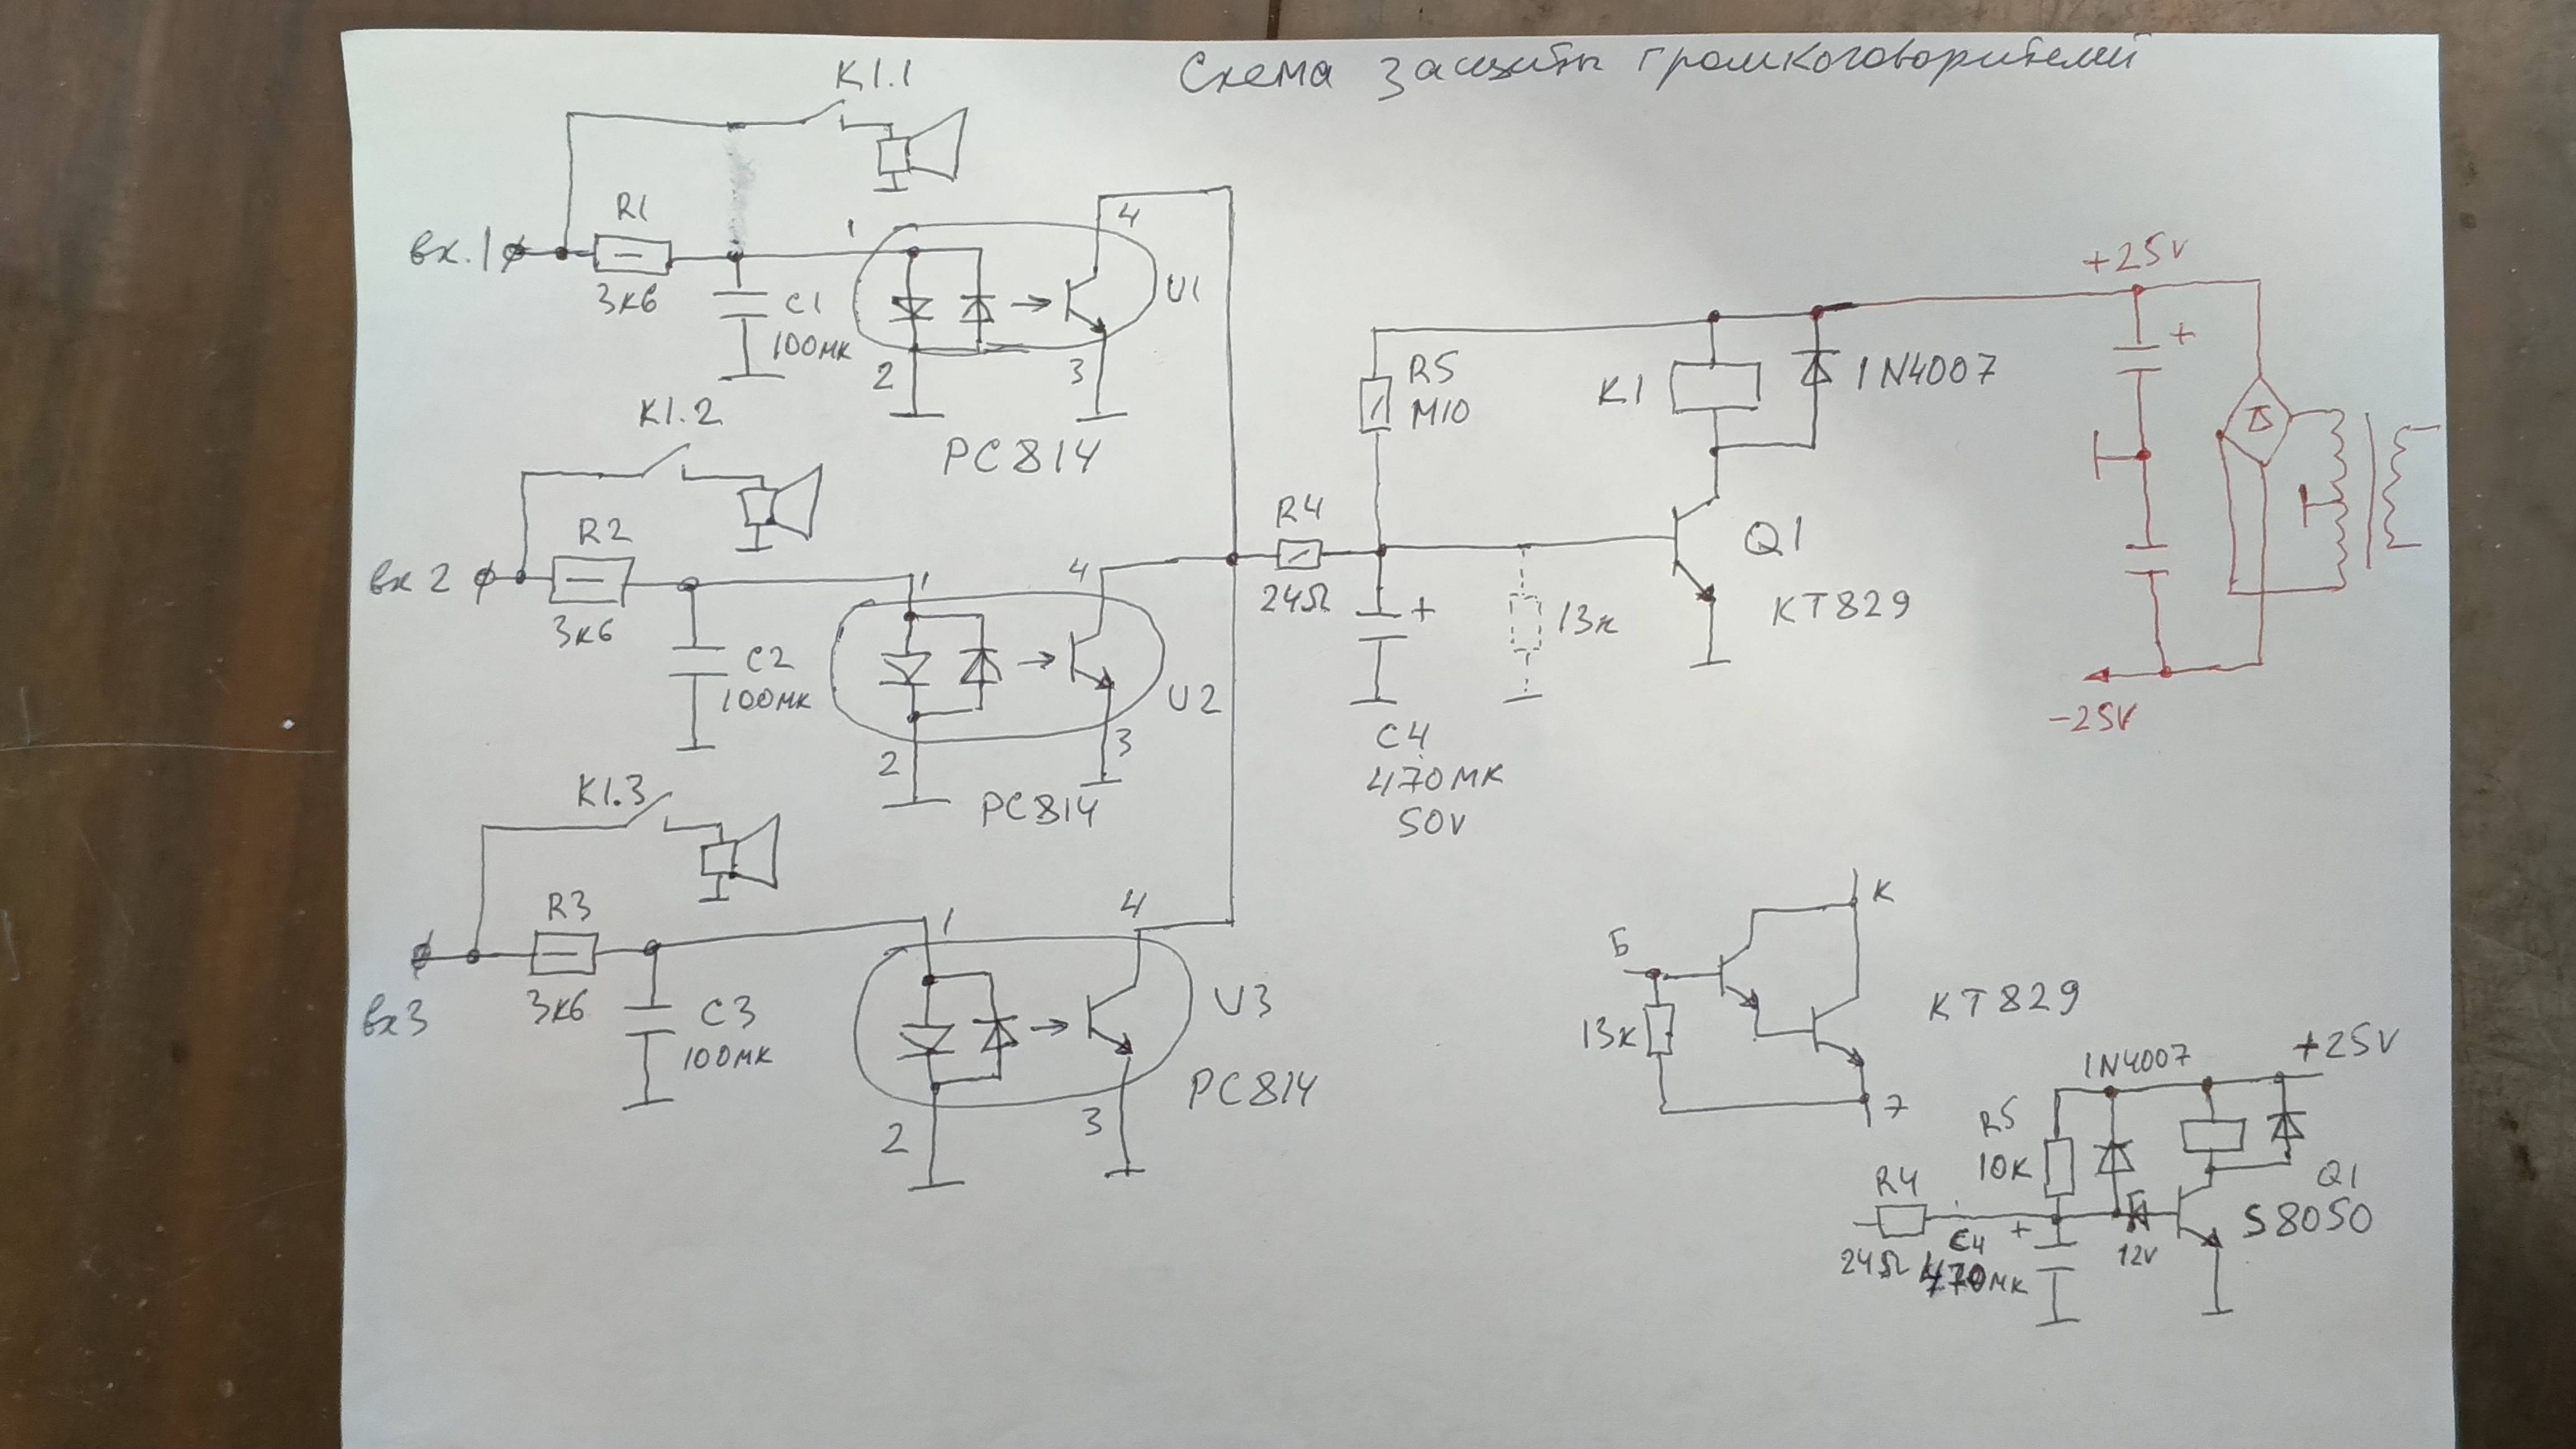 Схема защиты громкоговорителей
К1.1
вх.1
R1
3к6
C1
100мк
1
2
4
3
U1
PC814
К1.2
вх 2
R2
3к6
C2
100мк
1
2
4
3
U2
PC814
К1.3
вх3
R3
3к6
C3
100мк
1
2
4
3
U3
PC814
R4
24Ω
R5
М10
+
C4
470мк
50V
13к
К1
1N4007
Q1
КТ829
+25V
+
-25V
К
Б
13к
КТ829
Э
1N4007
+25V
R5
10к
R4
24Ω
+
C4
470мк
12V
Q1
S8050